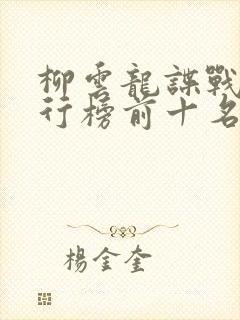 柳雲龍諜戰
行榜前十名
楊金奎